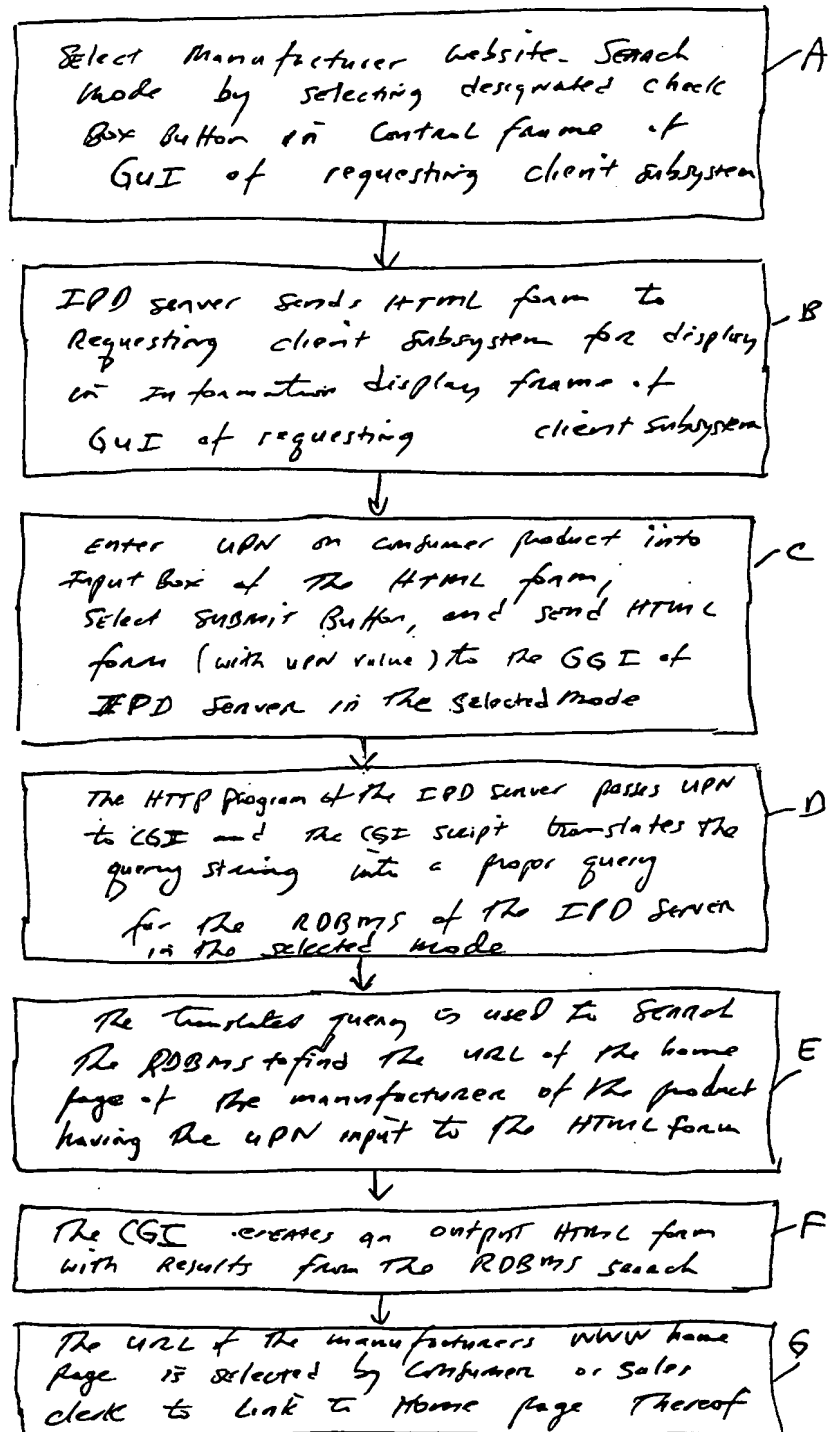 Select Manufacturer Website Search
Mode by selecting designated check
Box Button in Control frame of
GUI of requesting client subsystem
A
IPD server sends HTML form to
Requesting client subsystem for display
in Information display frame of
GUI of requesting client subsystem
B
Enter UPN on consumer product into
Input Box of the HTML form,
Select Submit Button, and send HTML
form (with UPN value) to the GGI of
IPD Server in the selected Mode
C
The HTTP program of the IPD server passes UPN
to CGI and the CGI script translates the
query string into a proper query
for the RDBMS of the IPD Server
in the selected mode
D
The translated query is used to search
the RDBMS to find the URL of the home
page of the manufacturer of the product
having the UPN input to the HTML form
E
The CGI creates an output HTML form
with Results from the RDBMS search
F
The URL of the manufacturers WWW home
page is selected by Consumer or Sales
clerk to Link to Home page Thereof
G